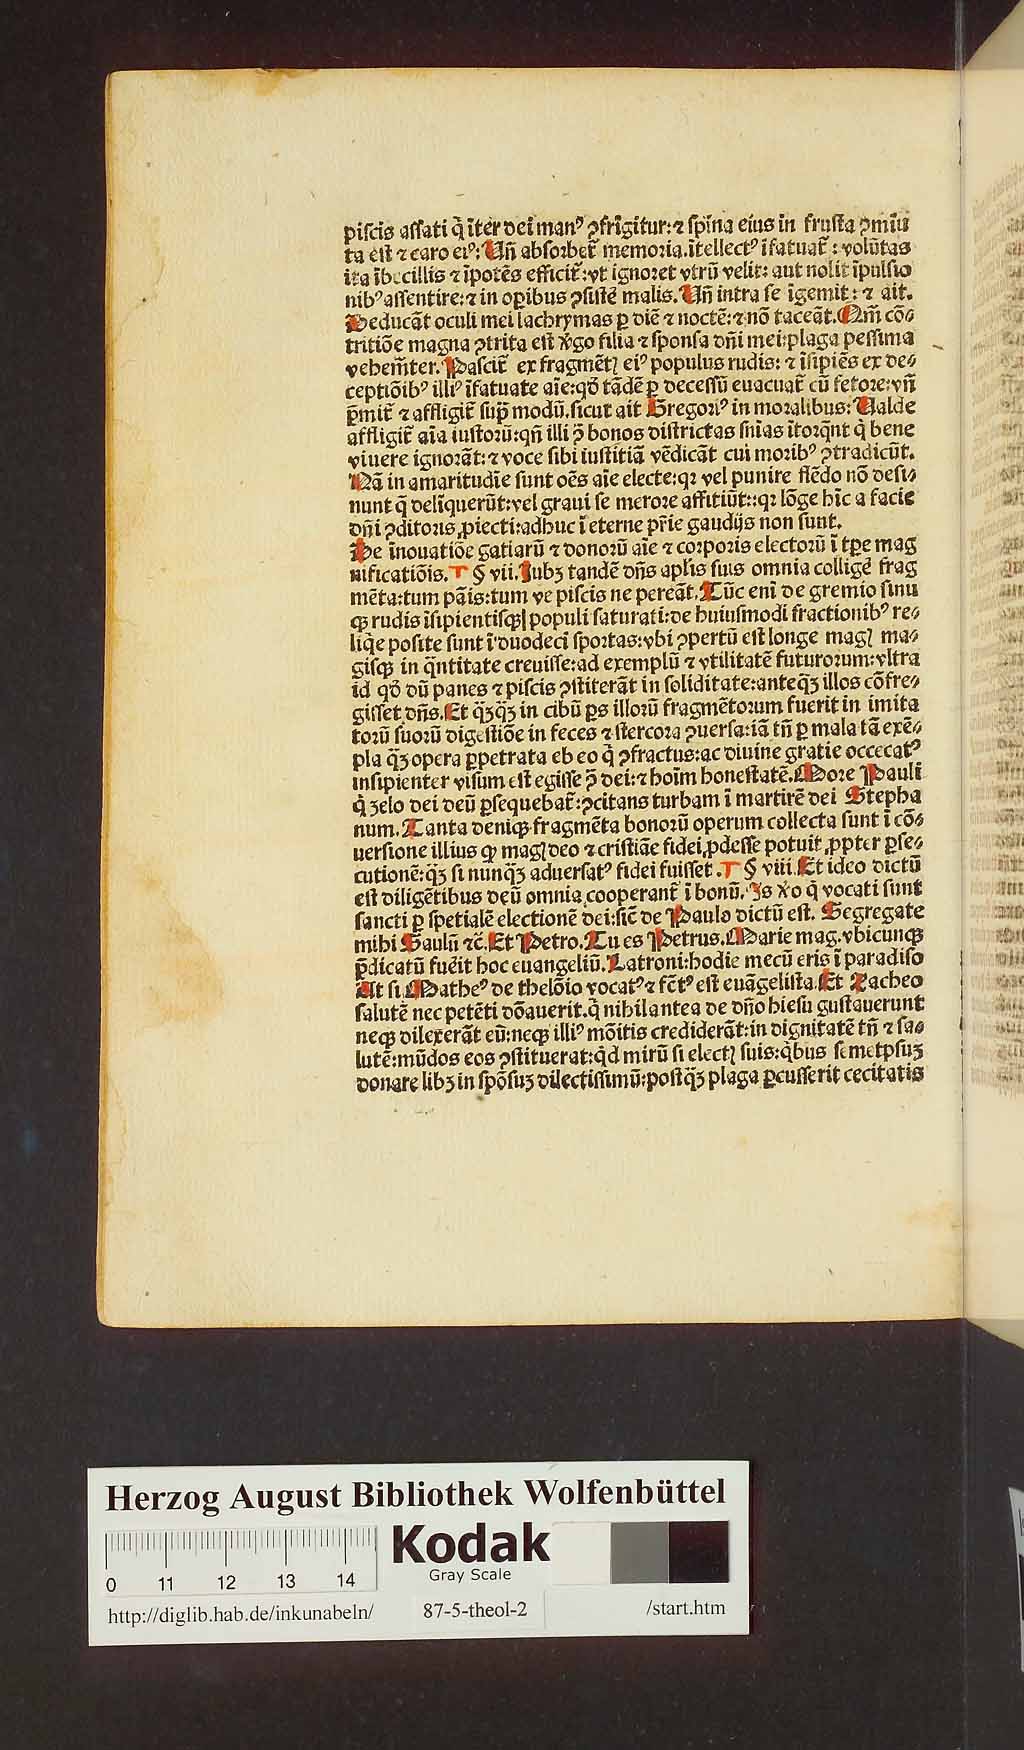 piscis assati q̇ īter dei manꝰ ꝯfrīgitur: ⁊ spina eius in frusta ꝯmiu
ta est ⁊ caro eiꝰ: Un̄ absorbet᷑ memoria.ītellectꝰ ifatuat᷑: volūtas
ita ībecillis ⁊ īpotēs efficit᷑: vt ignoret vtrū velit: aut nolit īpulsio
nibꝰ assentire: ⁊ in oꝑibus ꝯsistē malis. Un̄ intra se īgemit: ⁊ ait.
Deducāt oculi mei lachrymas ꝑ diē ⁊ noctē: ⁊ nō taceāt. Qm̄ cō⸗
tritiōe magna ꝯtrita est v̇go filia ⁊ sponsa dn̄i mei: plaga pessima
vehem̄ter. Pascit᷑ ex fragmētꝭ eiꝰ populus rudis: ⁊ īsipiēs ex de⸗
ceptiōibꝰ illiꝰ īfatuate aīe: qḋ tādē ꝑ decessū euacuat᷑ cū fetore: vn̄
p̄mit᷑ ⁊ affligit᷑ suꝑ modū. sicut ait Gregoriꝰ in moralibus: Ualde
affligit᷑ aīa iustorū: qn̄ illi ꝯ̄ bonos districtas sn̄ias ītorq̄nt q̇ bene
viuere ignorāt: ⁊ voce sibi iustitiā vēdicāt cui moribꝰ ꝯtradicūt.
Nā in amaritudīe sunt oēs aīe electe: qꝛ vel punire flēdo nō desi⸗
nunt q̄ delīquerūt: vel graui se merore affitiūt:: qꝛ lōge hīc a facie
dn̄i ꝯditoris ꝓiecti: adhuc ī eterne pr̄ie gaudijs non sunt.
De īnouatiōe gatiarū ⁊ donorū aīe ⁊ corporis electorū ī tꝑe mag
nificatiōis. § vii. Iubꝫ tandē dn̄s aplis suis omnia colligē frag
mēta: tum pāis: tum ve piscis ne pereāt. Tūc enī de gremio sinu
qꝫ rudis īsipientisqꝫ populi saturati: de huiusmodi fractionibꝰ re⸗
liq̄e posite sunt ī duodecī sportas: vbi ꝯpertū est longe magꝭ ma⸗
gisqꝫ in q̄ntitate creuisse: ad exemplū ⁊ vtilitatē futurorum: vltra
id qḋ dū panes ⁊ piscis ꝯstiterāt in soliditate: anteq̄ꝫ illos cōfre⸗
gisset dn̄s. Et q̄ꝫq̄ꝫ in cibū ꝑs illorū fragmētorum fuerit in imita
torū suorū digestiōe in feces ⁊ stercora ꝯuersa: iā tn̄ ꝑ mala tā exē⸗
pla q̄ꝫ opera ꝑpetrata eb eo q̇ ꝯfractus: ac diuine gratie occecatꝰ
insipienter visum est egisse ꝯ̄ dei: ⁊ hoīm honestatē. More Pauli
q̇ zelo dei deū ꝑsequebat᷑: ꝯcitans turbam ī martirē dei Stepha
num. Tanta deniqꝫ fragmēta bonorū operum collecta sunt ī cō⸗
uersione illius qꝫ magꝭ deo ⁊ cristiāe fidei ꝓdesse potuit ꝓpter ꝑse⸗
cutionē: q̄ꝫ si nunq̄ꝫ aduersatꝰ fidei fuisset. § viii. Et ideo dictū
est diligētibus deū omnia cooperant᷑ ī bonū. Is v̇o q̇ vocati sunt
sancti ꝑ spetialē electionē dei: sic̄ de Paulo dictū est. Segregate
mihi Saulū ⁊c̄. Et Petro. Tu es Petrus. Marie mag. vbicunqꝫ
p̄dicatū fuēit hoc euangeliū. Latroni: hodie mecū eris ī paradiso
Ut si Matheꝰ de thelōio vocatꝰ ⁊ fc̄tꝰ est euāgelista. Et Zacheo
salutē nec petēti dōauerit. q̇ nihil antea de dn̄o hiesu gustauerunt
neqꝫ dilexerāt eū: neqꝫ illiꝰ mōitis crediderāt: in dignitatē tn̄ ⁊ sa⸗
lutē: mūdos eos ꝯstituerat: q̇d mirū si electꝭ suis: q̇bus semetpsuꝫ
donare libꝫ in spōsuꝫ dilectissimū: postq̄ꝫ plaga ꝑcusserit cecitatis
Herzog August Bibliothek Wolfenbüttel
Kodak
Gray Scale
0 11 12 13 14
http://diglib.hab.de/inkunabeln/ 87-5-theol-2 /start.htm